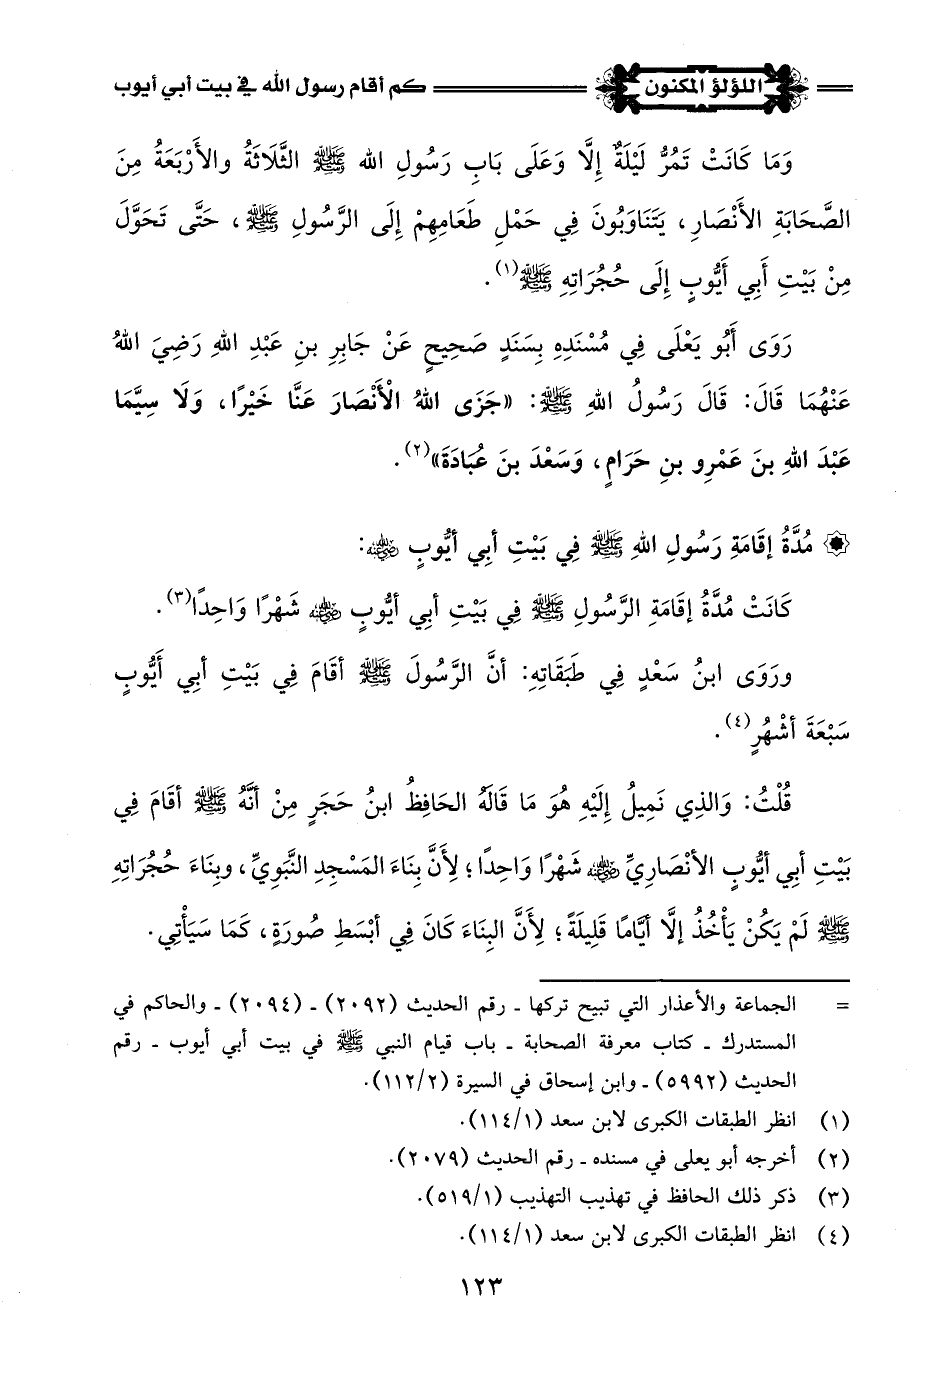 اللؤلؤ المكنون كم أقام رسول الله في بيت أبي أيوب
وَمَا كَانَتْ تَمُرُّ لَيْلَةٌ إِلَّا وَعَلَى بَابِ رَسُولِ الله ﷺ الثَّلَاثَةُ والأَرْبَعَةُ مِنَ
الصَّحَابَةِ الأَنْصَارِ، يَتَنَاوَبُونَ فِي حَمْلِ طَعَامِهِمْ إِلَى الرَّسُولِ ﷺ، حَتَّى تَحَوَّلَ
مِنْ بَيْتِ أَبِي أَيُّوبٍ إِلَى حُجُرَاتِهِ ﷺ(١).
رَوَى أَبُو يَعْلَى فِي مُسْنَدِهِ بِسَنَدٍ صَحِيحٍ عَنْ جَابِرِ بنِ عَبْدِ اللهِ رَضِيَ اللهُ
عَنْهُمَا قَالَ: قَالَ رَسُولُ اللهِ ﷺ: «جَزَى اللهُ الْأَنْصَارَ عَنَّا خَيْرًا، وَلَا سِيَّمَا
عَبْدَ اللهِ بنَ عَمْرِو بنِ حَرَامٍ، وَسَعْدَ بنَ عُبَادَةَ»(٢).
مُدَّةُ إقَامَةِ رَسُولِ اللهِ ﷺ فِي بَيْتِ أبِي أيُّوبٍ رضي الله عنه:
كَانَتْ مُدَّةُ إقَامَةِ الرَّسُولِ ﷺ فِي بَيْتِ أبِي أيُّوبٍ رضي الله عنه شَهْرًا وَاحِدًا(٣).
ورَوَى ابنُ سَعْدٍ فِي طَبَقَاتِهِ: أنَّ الرَّسُولَ ﷺ أقَامَ فِي بَيْتِ أبِي أَيُّوبٍ
سَبْعَةَ أشْهُرٍ(٤).
قُلْتُ: وَالذِي نَمِيلُ إلَيْهِ هُوَ مَا قَالَهُ الحَافِظُ ابنُ حَجَرٍ مِنْ أنَّهُ ﷺ أقَامَ فِي
بَيْتِ أبِي أيُّوبٍ الأنْصَارِيِّ رضي الله عنه شَهْرًا وَاحِدًا؛ لِأَنَّ بِنَاءَ المَسْجِدِ النَّبَوِيِّ، وبِنَاءَ حُجُرَاتِهِ
ﷺ لَمْ يَكُنْ يَأْخُذُ إلَّا أيَّامًا قَلِيلَةً؛ لِأَنَّ البِنَاءَ كَانَ فِي أبْسَطِ صُورَةٍ، كَمَا سَيَأْتِي.
= الجماعة والأعذار التي تبيح تركها ـ رقم الحديث (٢٠٩٢) ـ (٢٠٩٤) ـ والحاكم في
المستدرك ـ كتاب معرفة الصحابة ـ باب قيام النبي ﷺ في بيت أبي أيوب ـ رقم
الحديث (٥٩٩٢) ـ وابن إسحاق في السيرة (١١٢/٢).
(١) انظر الطبقات الكبرى لابن سعد (١١٤/١).
(٢) أخرجه أبو يعلى في مسنده ـ رقم الحديث (٢٠٧٩).
(٣) ذكر ذلك الحافظ في تهذيب التهذيب (٥١٩/١).
(٤) انظر الطبقات الكبرى لابن سعد (١١٤/١).
١٢٣